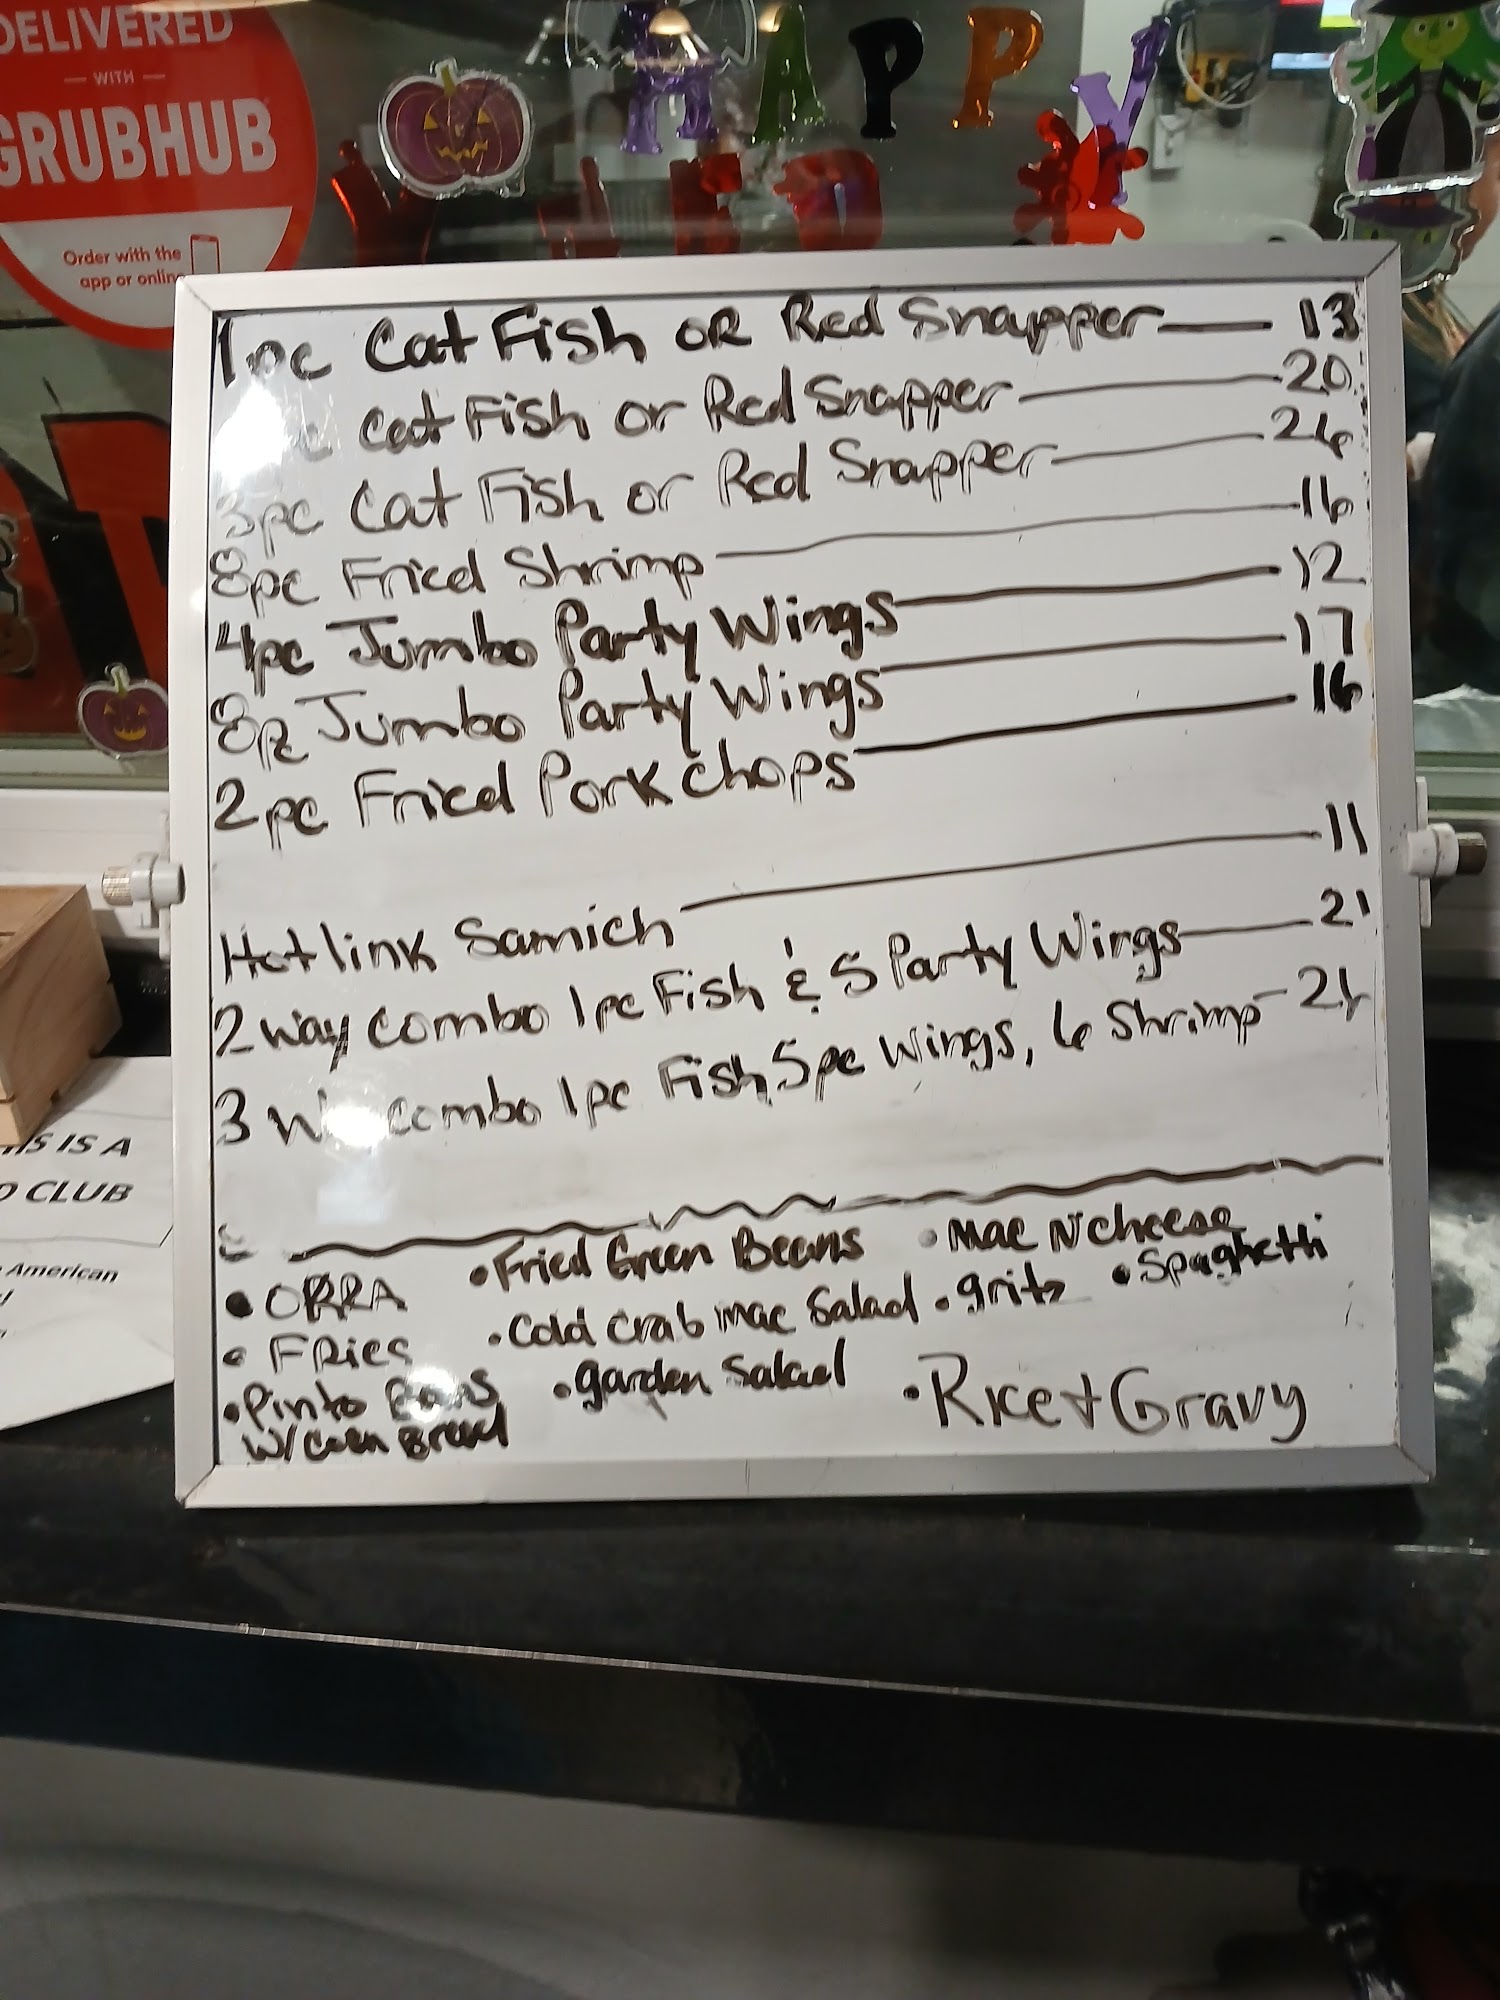 DELIVERED
WITH
GRUBHUB
Order with the
app or online
HAPPY
1pc Cat Fish OR Red Snapper 13
Cat Fish or Red Snapper 20
3pc Cat Fish or Red Snapper 26
8pc Fried Shrimp 16
4pc Jumbo Party Wings 12
8pc Jumbo Party Wings 17
2pc Fried Pork chops 16
Hotlink Samich 11
2 way combo 1pc Fish & 5 Party Wings 21
3 combo 1pc Fish, 5pc Wings, 6 Shrimp
• OKRA • Fried Green Beans • Mac N cheese
• Fries • Cold Crab mac Salad • grits • Spaghetti
• Pinto Beans • garden Salad • Rice + Gravy
W/ Corn Bread
IS A
CLUB
American